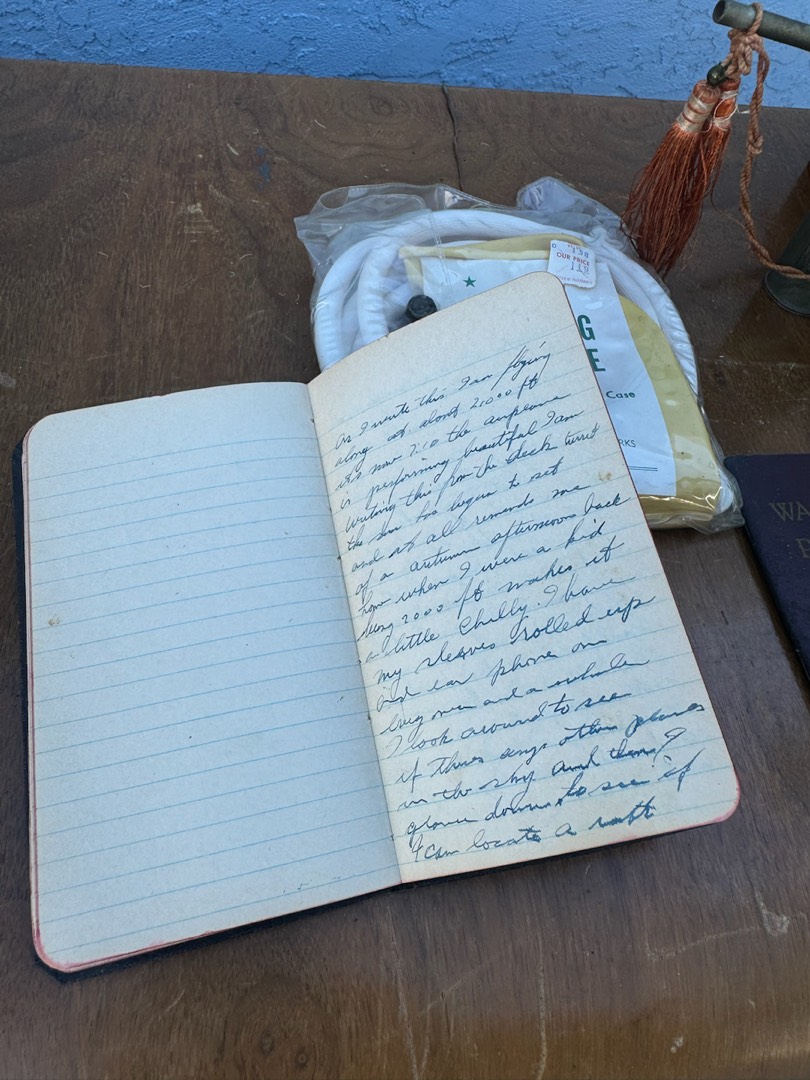 As I write this I am flying
along at about 2,000 ft
its now 7:10 the airplane
is performing beautiful I am
writing this from the deck turret
the sun has begun to set
and it all reminds me
of a autumn afternoons back
home when I were a kid
being 2000 ft makes it
a little Chilly. I have
my sleaves rolled up
and ear phone on
every now and a while
I look around to see
if theres any other planes
in the sky and then I
glance down to see if
I can locate a raft
OUR PRICE
G
E
Case
RKS
WA